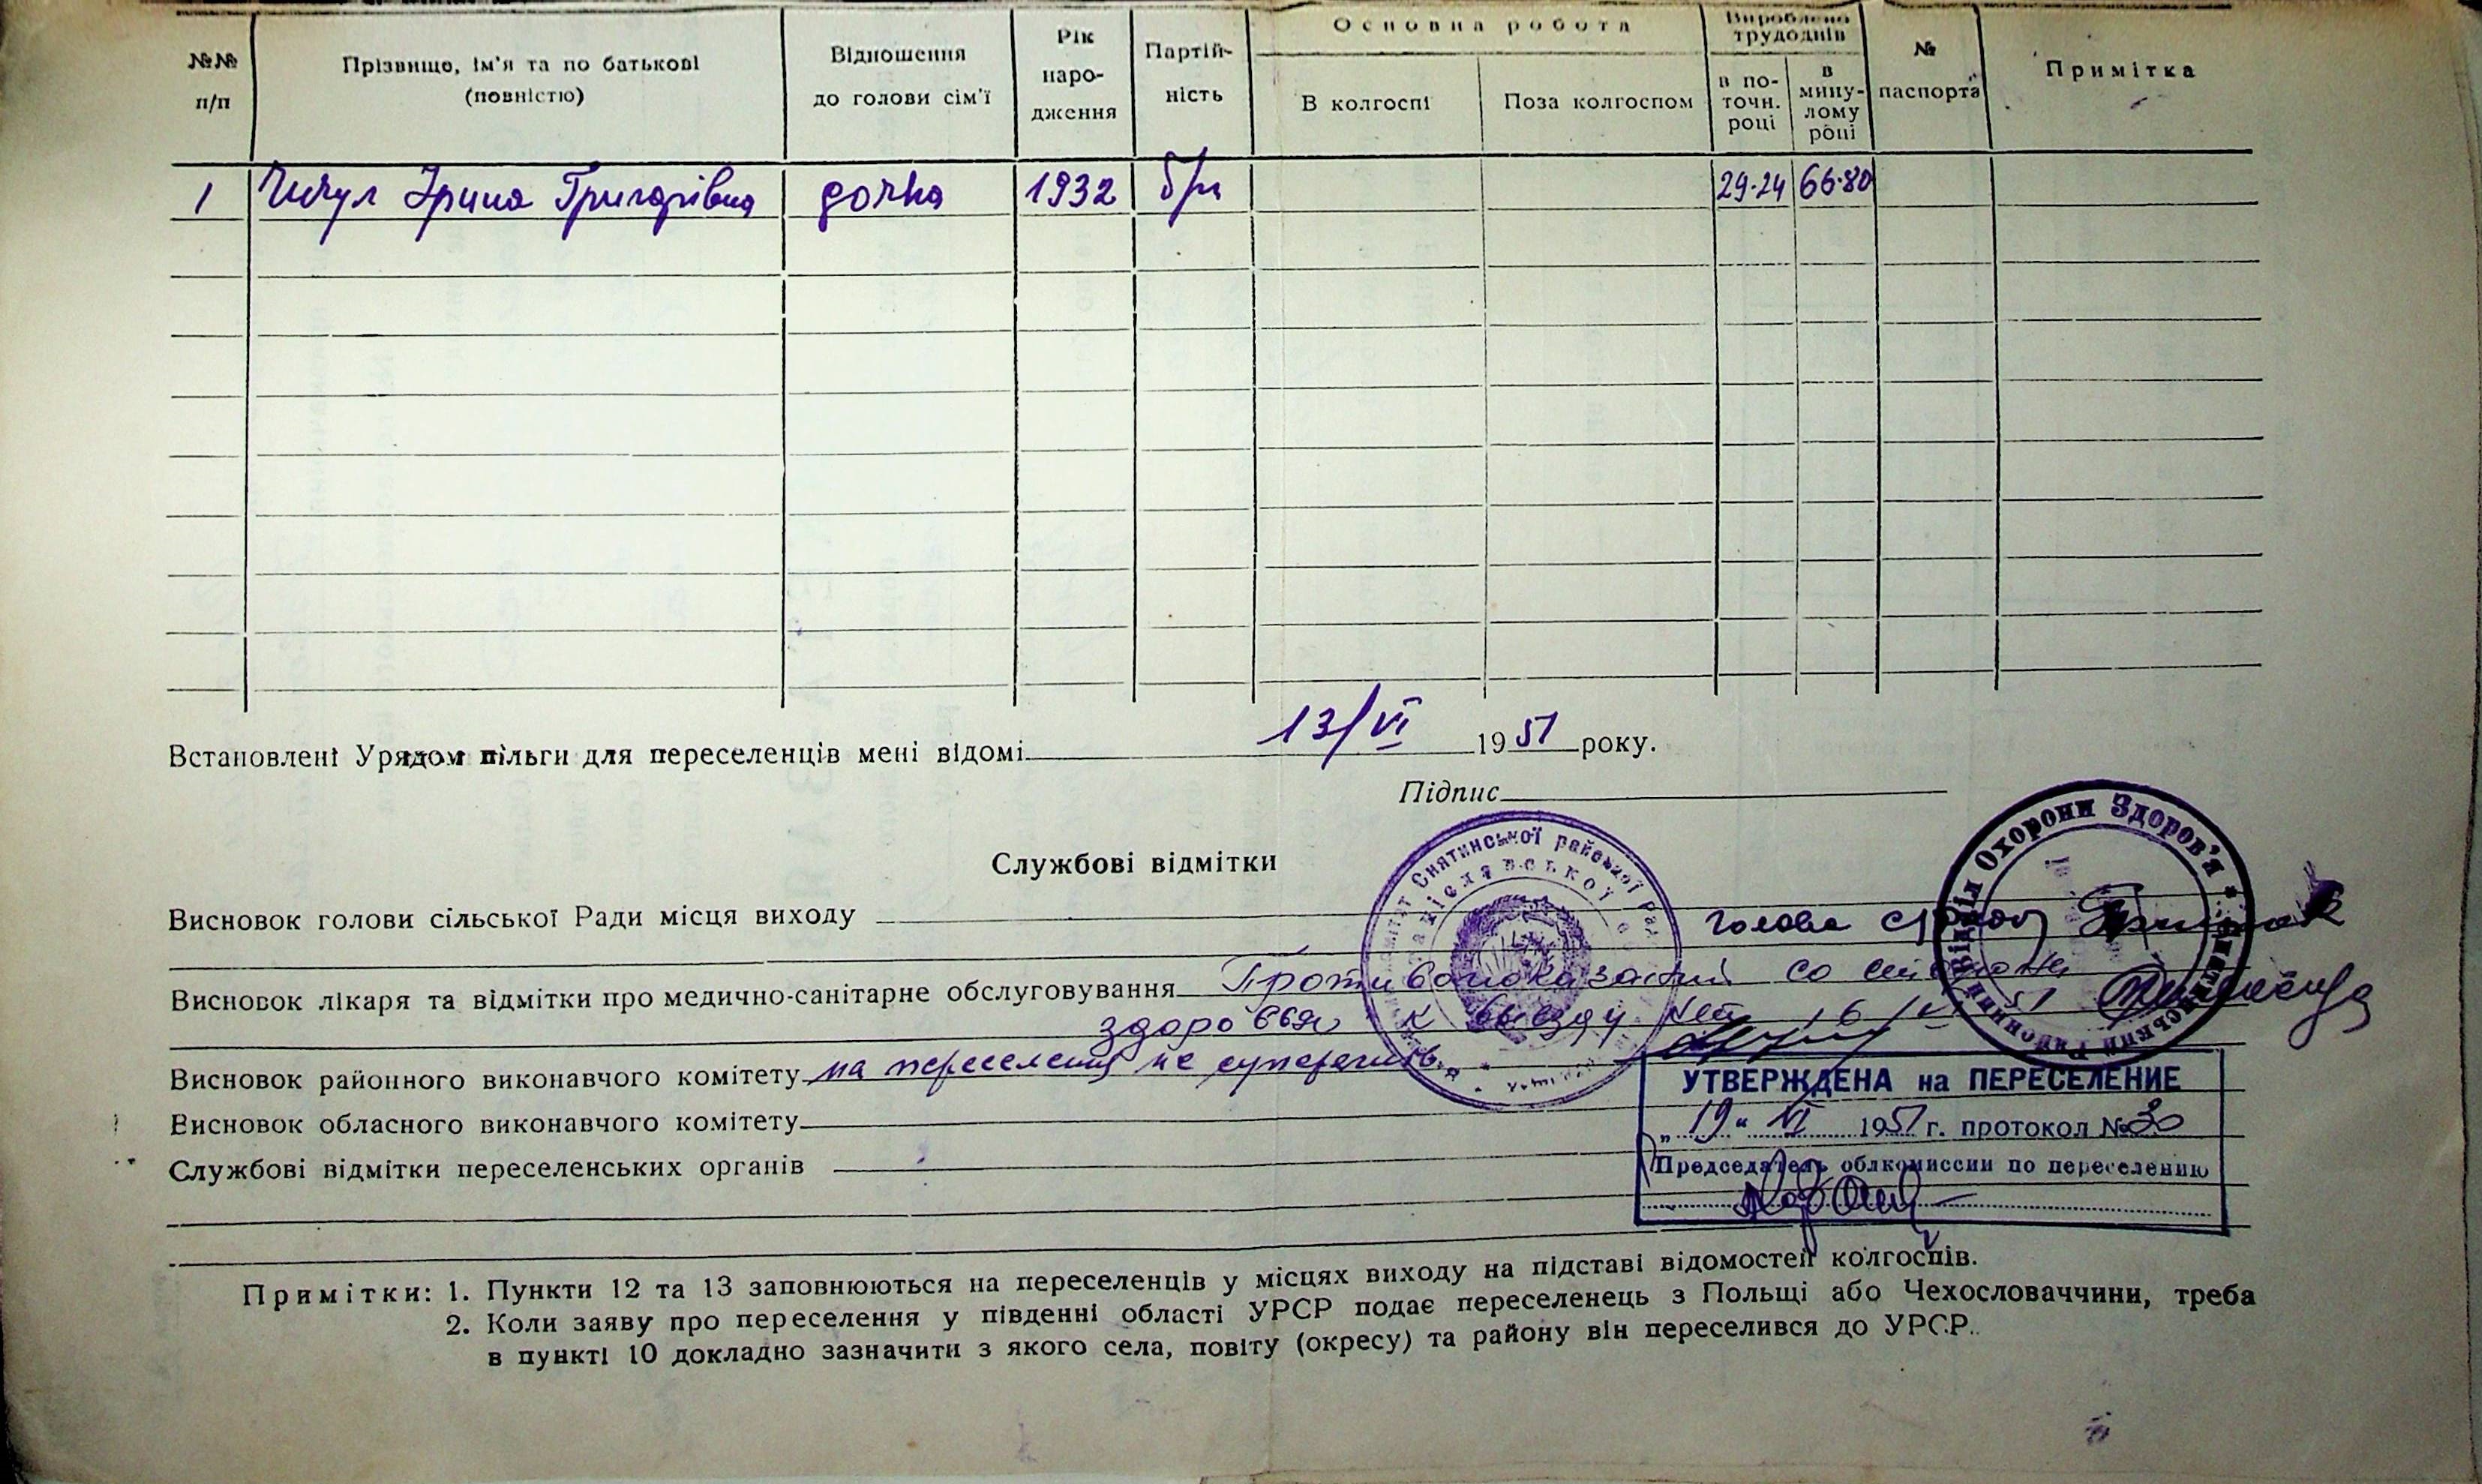 №№ п/п
Прізвище, ім'я та по батькові (повністю)
Відношення до голови сім'ї
Рік наро-дження
Партій-ність
Основна робота
В колгоспі
Поза колгоспом
Вироблено трудоднів
в по-точн. році
в мину-лому році
№ паспорта
Примітка
1 Ірина Григорівна дочка 1932 б/п 29·24 66·80
Встановлені Урядом пільги для переселенців мені відомі 13/VI 1951 року.
Підпис
Службові відмітки
Висновок голови сільської Ради місця виходу
Голова
Висновок лікаря та відмітки про медично-санітарне обслуговування Противопоказаний со стороны
здоровья к выезду нет 51
Висновок районного виконавчого комітету на переселення не суперечить
Висновок обласного виконавчого комітету
Службові відмітки переселенських органів
Снятинської районної Рад
Відділ Охорони Здоров'я
УТВЕРЖДЕНА на ПЕРЕСЕЛЕНИЕ
„19" VI 1951 г. протокол № 30
Председатель облкомиссии по переселению
Примітки: 1. Пункти 12 та 13 заповнюються на переселенців у місцях виходу на підставі відомостей колгоспів.
2. Коли заяву про переселення у південні області УРСР подає переселенець з Польщі або Чехословаччини, треба
в пункті 10 докладно зазначити з якого села, повіту (окресу) та району він переселився до УРСР.